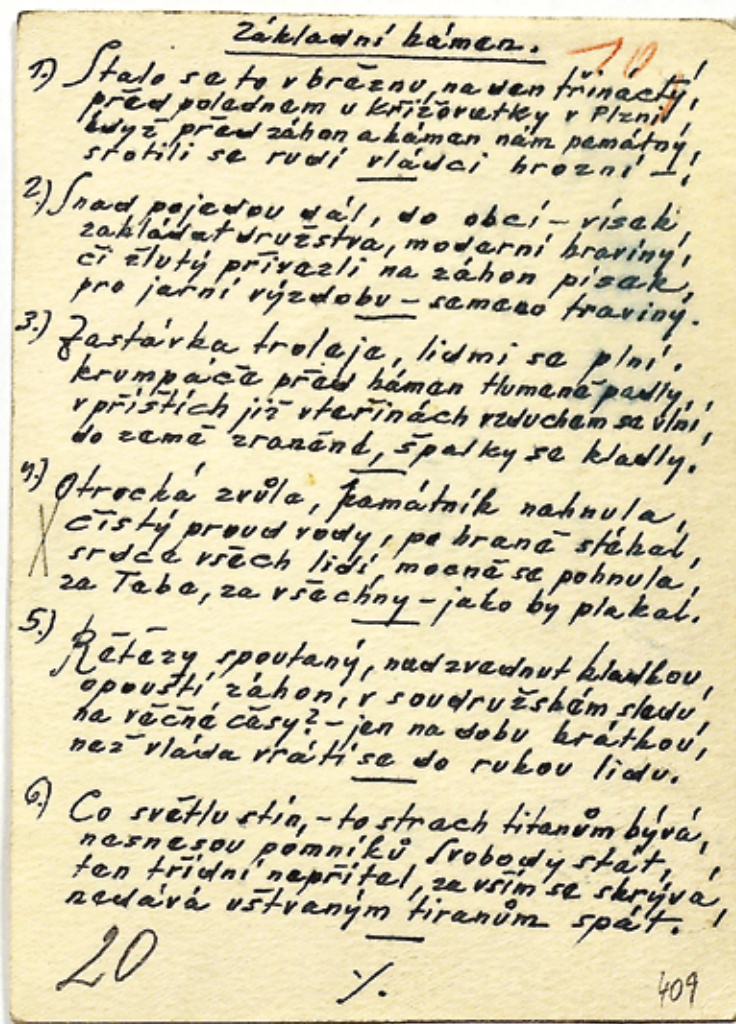 Základní kámen.
10
1.) Stalo se to v březnu, na den třináctý,
před polednem u křižovatky v Plzni,
když před záhon a kámen nám památný,
srotili se rudí vládci hrozní –!
2.) Snad pojedou dál, do obcí – vísek,
zakládat družstva, moderní kravíny,
či žlutý přivezli na záhon písek,
pro jarní výzdobu – semeno traviny.
3.) Zastávka troleje, lidmi se plní.
krumpáče před kámen tlumeně padly,
v příštích již vteřinách vzduchem se vlní,
do země zraněné, špalky se kladly.
4.) Otrocká zvůle, památník nahnula,
čistý proud vody, po hraně stékal,
srdce všech lidí, mocně se pohnula,
za Tebe, za všechny – jako by plakal.
5.) Řetězy spoutaný, nadzvednut kladkou,
opouští záhon, v soudružském sledu,
na věčné časy? – jen na dobu krátkou,
než vláda vrátí se do rukou lidu.
6.) Co světlu stín, – to strach titanům bývá,
nesnesou pomníků Svobody stát,
ten třídní nepřítel, za vším se skrývá,
nedává uštvaným tiranům spát.!
20
./.
409